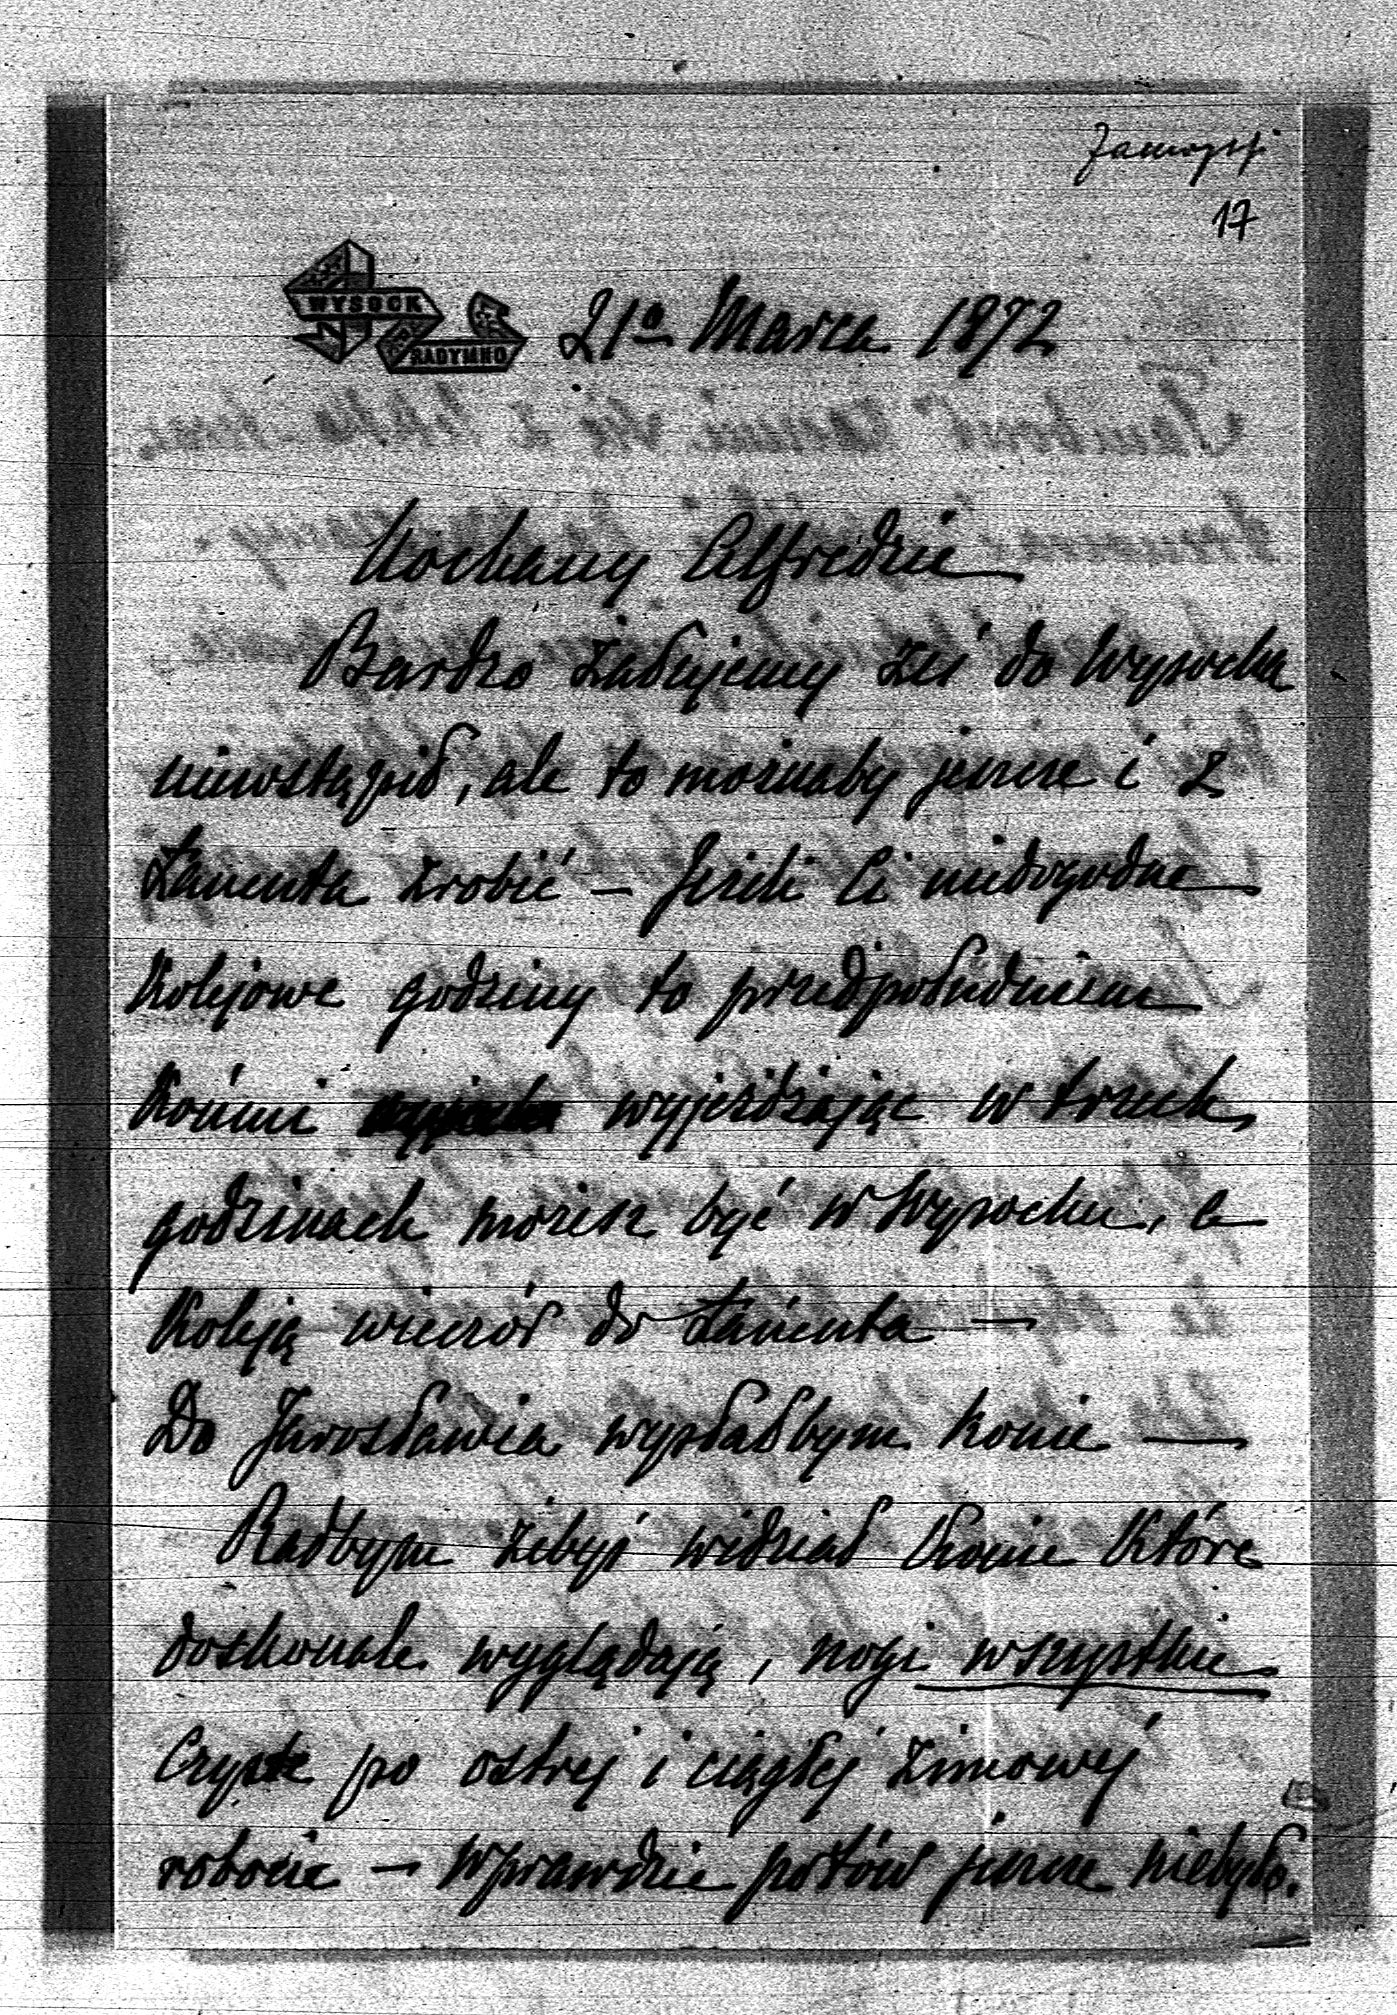 Zamoyski
17
WYSOCK
RADYMNO
21º Marca 1872
Kochany Alfredzie
Bardzo żałujemy żeś do Wysocka
niewstąpił, ale to możnaby jeszcze i z
Łańcuta zrobić — Jeżeli Ci niedogodne
Kolejowe godziny to przedpołudniem
Końmi wyjeżdżając w trzech
godzinach możesz być w Wysocku, a
Koleją wieczór do Łańcuta —
Do Jarosławia wysłałbym konie —
Radbym żebyś widział Konie Które
doskonale wyglądają, nogi wszystkie
czyste po ostrej i ciągłej zimowej
robocie — Wprawdzie potów jeszcze niebyło.